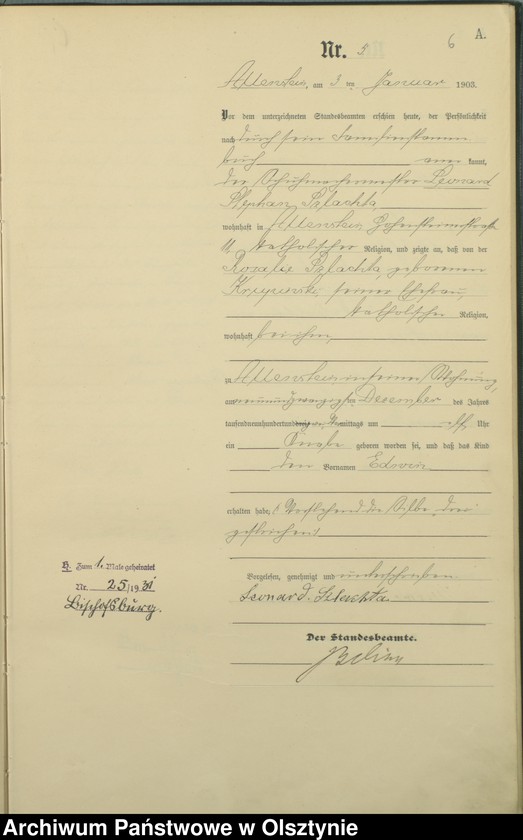 A.
6
Nr. 5
Allenstein, am 3 ten Januar 1903.
Vor dem unterzeichneten Standesbeamten erschien heute, der Persönlichkeit
nach durch sein Familienstamm
buch anerkannt,
der Schuhmachermeister Leonard
Stephan Szlachta
wohnhaft in Allenstein, Hohensteinerstraße
11, katholischer Religion, und zeigte an, daß von der
Rosalie Szlachta geborenen
seiner Ehefrau,
katholischer Religion,
wohnhaft bei ihm,
zu Allenstein in seiner Wohnung,
am neunundzwanzigsten December des Jahres
tausendneunhundertdrei mittags um elf Uhr
ein Knabe geboren worden sei, und daß das Kind
den Vornamen Edwin
erhalten habe. (Vorstehend die Silbe "drei"
gestrichen)
Vorgelesen, genehmigt und unterschrieben
Leonard Szlachta
Der Standesbeamte.
H. Zum 1. Male geheiratet
Nr. 25/1931
Bischofsburg.
Archiwum Państwowe w Olsztynie